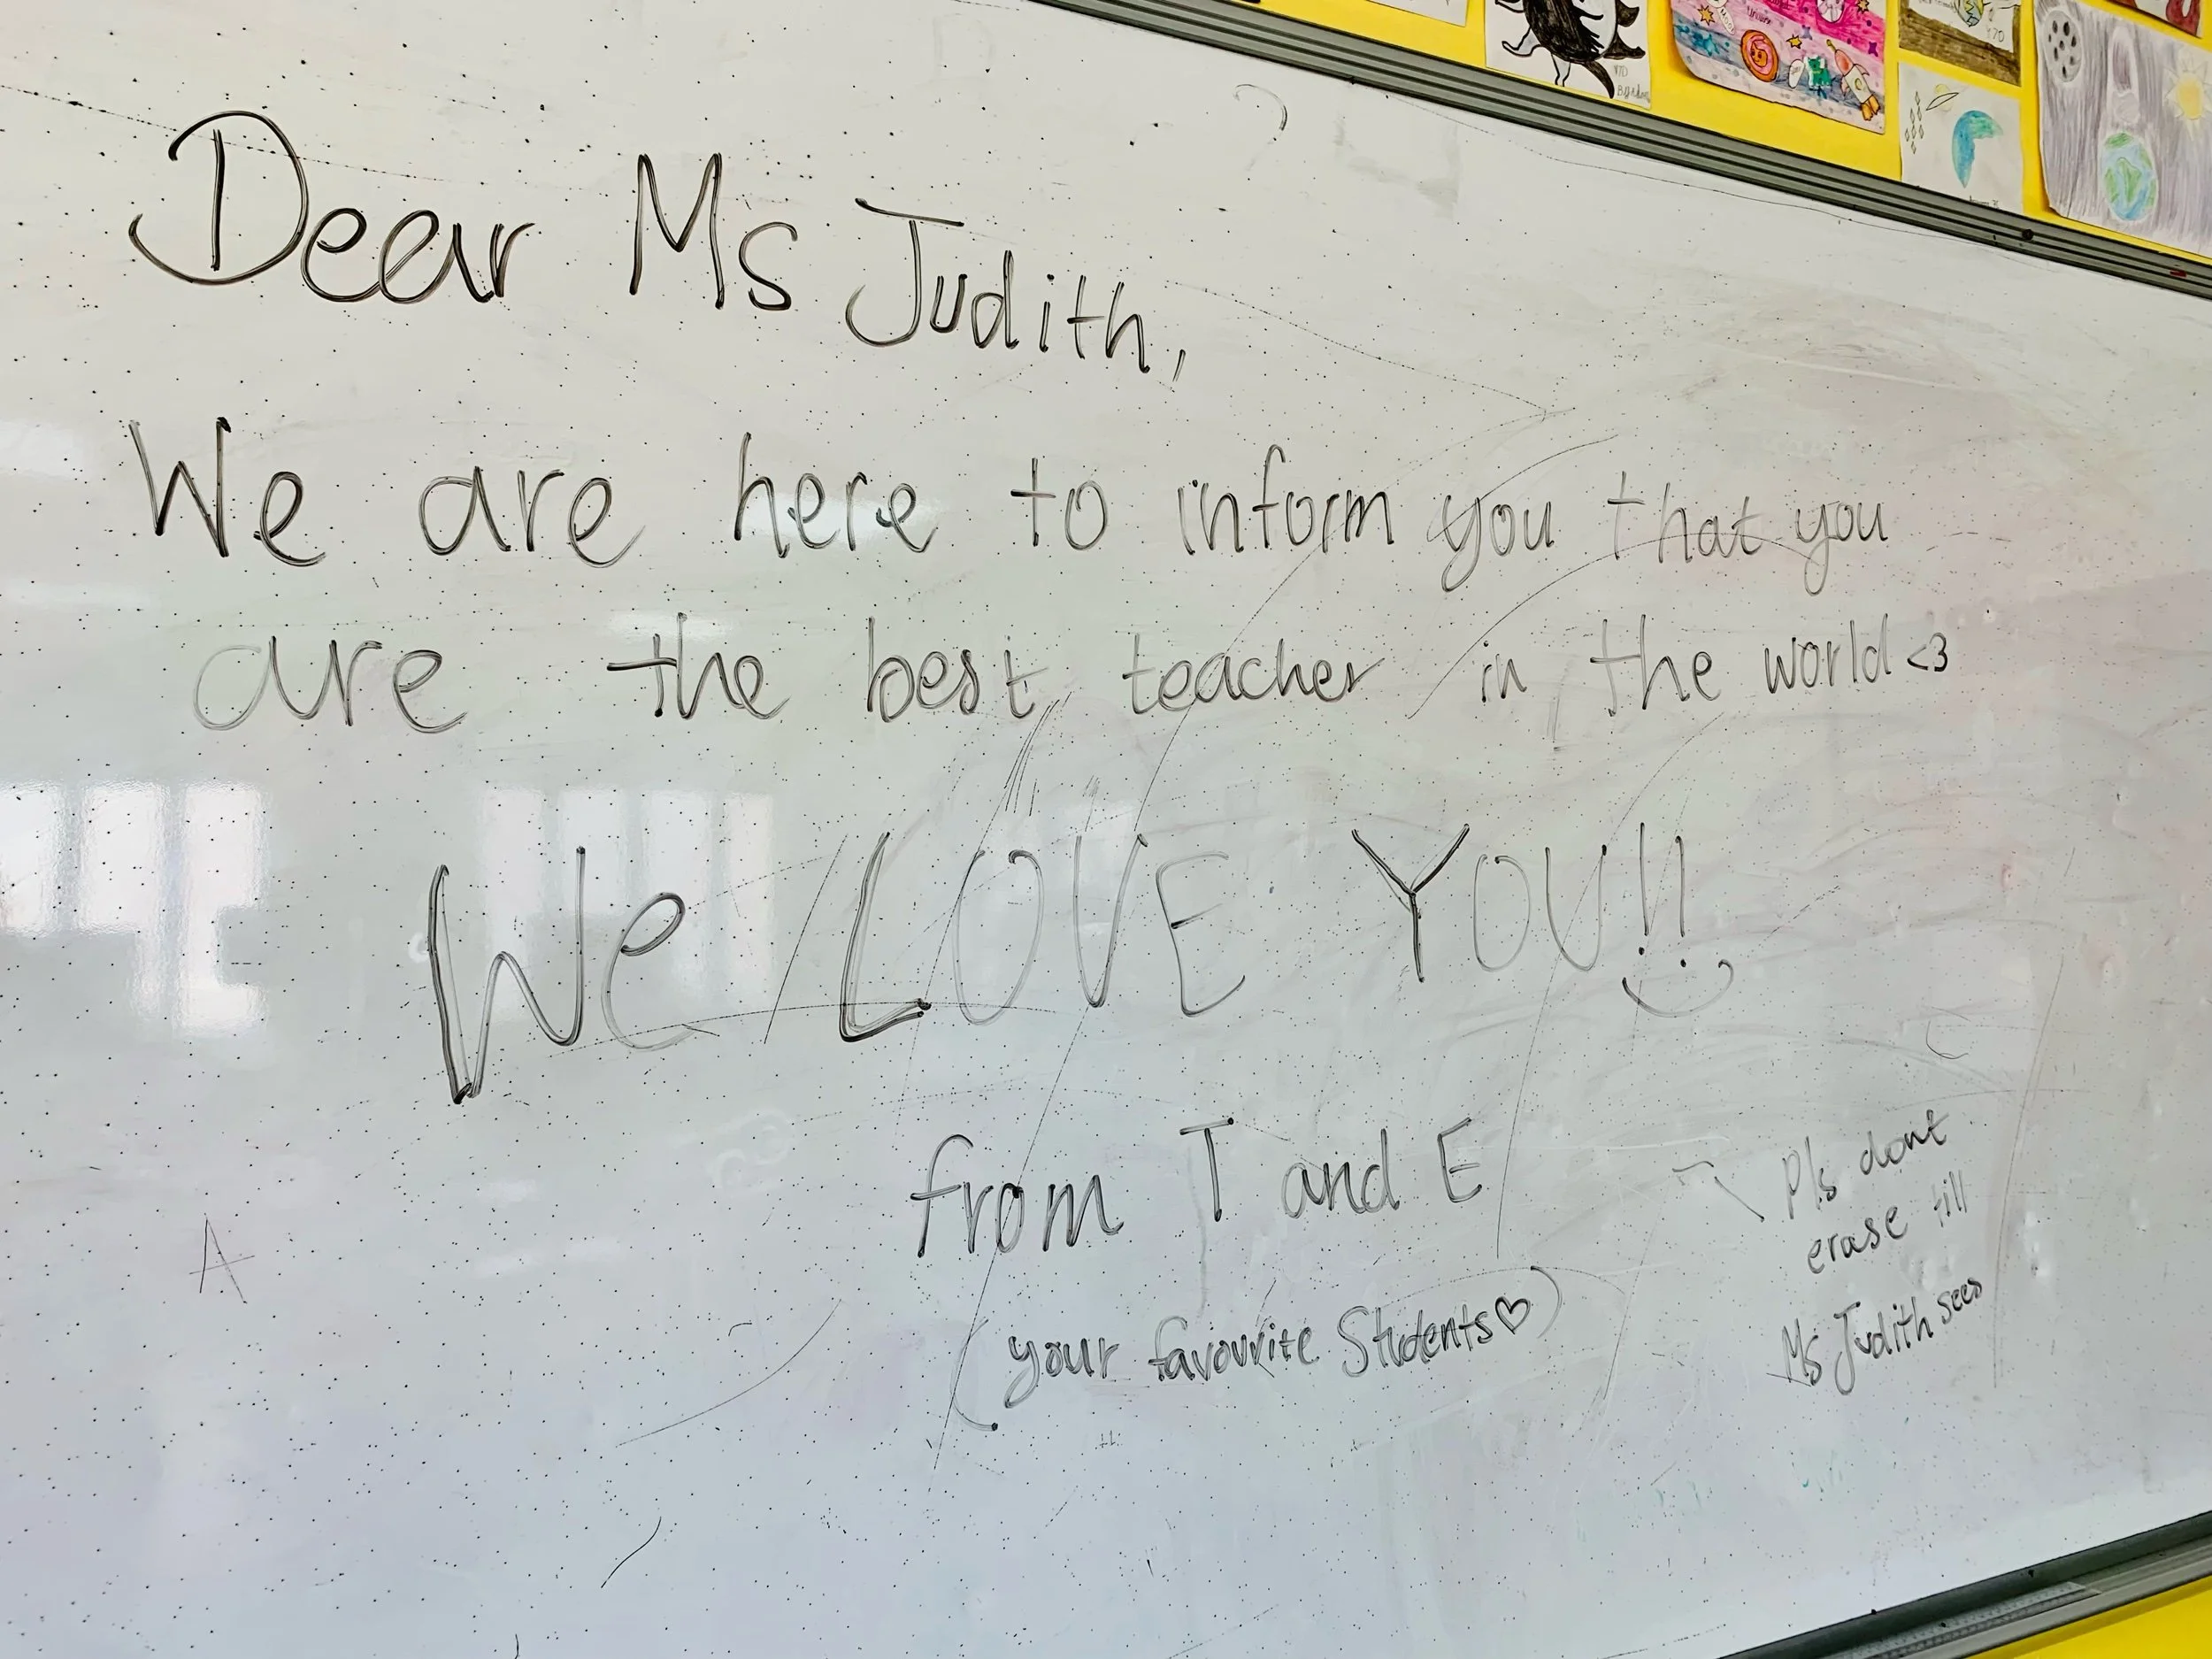 Dear Ms Judith,
We are here to inform you that you
are the best teacher in the world <3
We LOVE YOU!!
from T and E
(your favourite Students♡)
Pls dont
erase till
Ms Judith sees
A